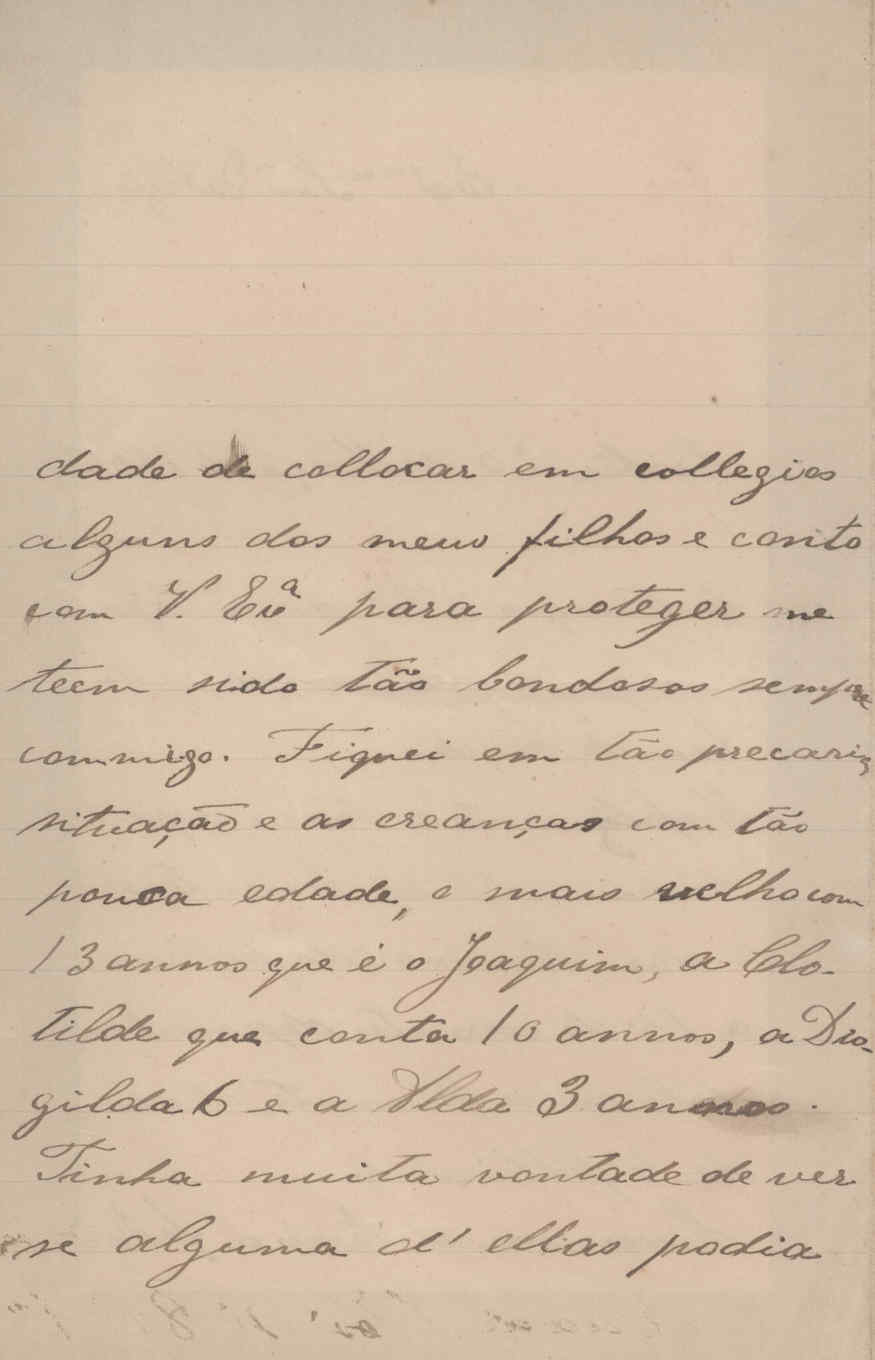 dade de collocar em collegios
alguns dos meus filhos e conto
com V. Exª para proteger me
teem sido tão bondosos sempre
commigo. Fiquei em tão precaria
situação e as creanças com tão
pouca edade, o mais velho com
13 annos que é o Joaquim, a Clo-
tilde que conta 10 annos, a Dio-
gilda 6 e a Alda 3 annos.
Tinha muita vontade de ver
se alguma d'ellas podia